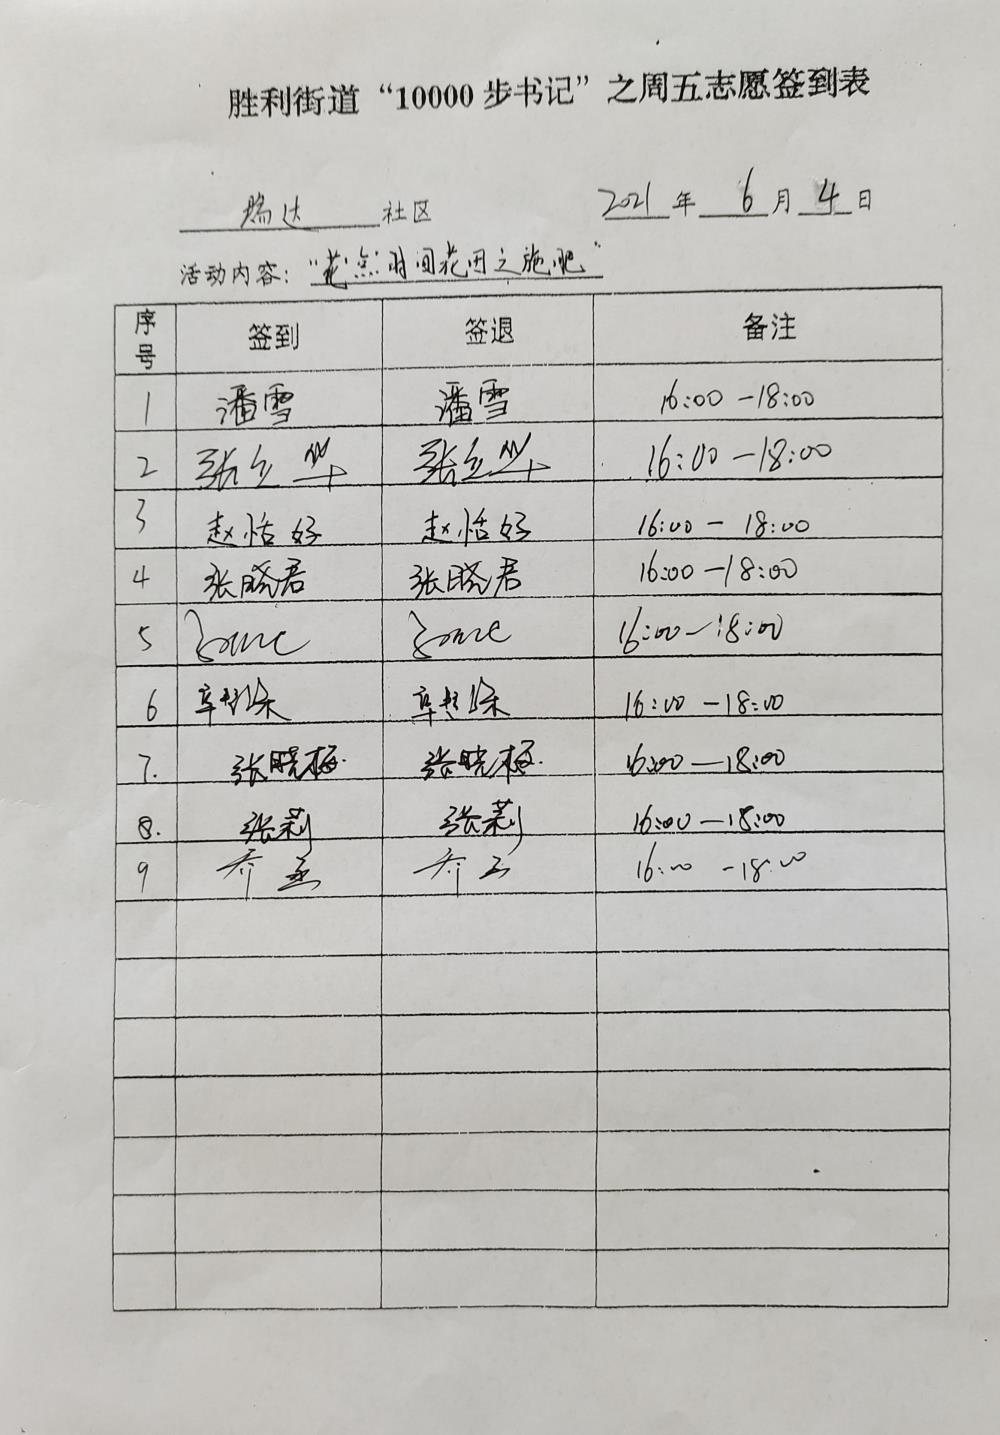 胜利街道“10000步书记”之周五志愿签到表
瑞达 社区 2021 年 6 月 4 日
活动内容：“花点时间花田之施肥”
序号 签到 签退 备注
1 潘雪 潘雪 16:00-18:00
2 张立华 张立华 16:00-18:00
3 赵恬好 赵恬好 16:00-18:00
4 张晓君 张晓君 16:00-18:00
5 16:00-18:00
6 16:00-18:00
7. 张晓梅. 张晓梅. 16:00-18:00
8. 张莉 张莉 16:00-18:00
9 乔 乔 16:00-18:00